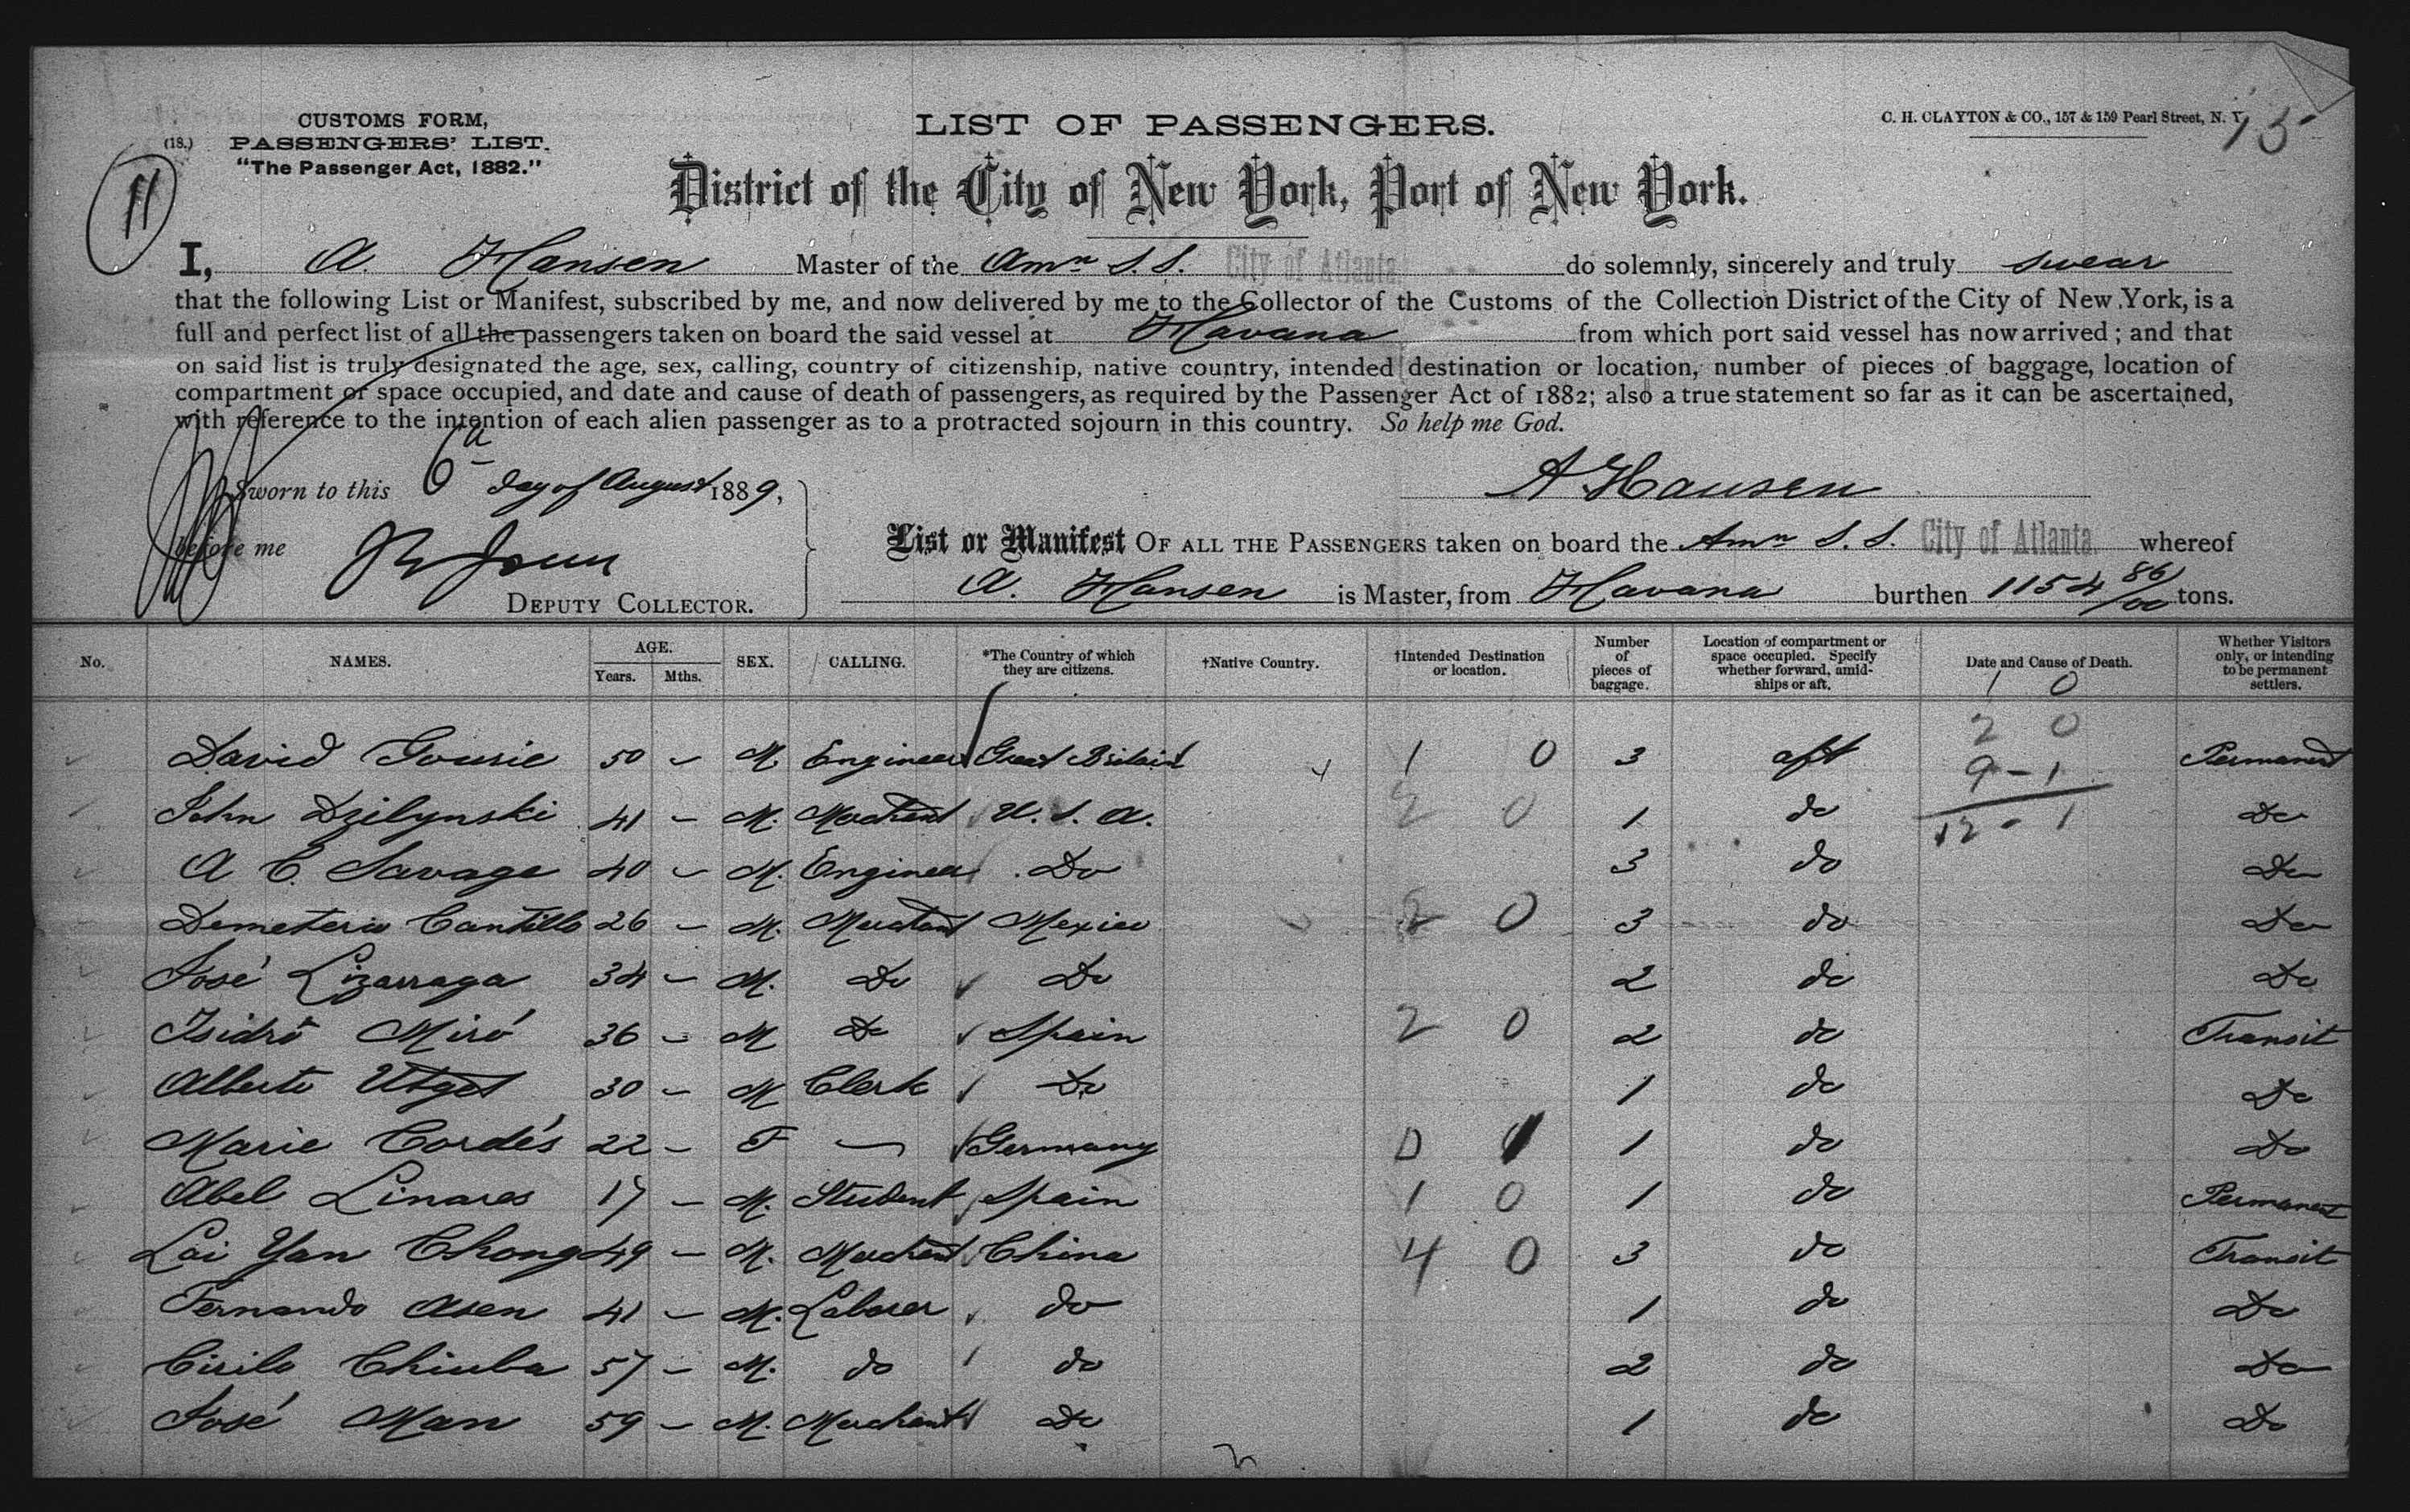 CUSTOMS FORM,
(18.) PASSENGERS' LIST.
"The Passenger Act, 1882."
11
LIST OF PASSENGERS.
C. H. CLAYTON & CO., 157 & 159 Pearl Street, N. Y.
15
District of the City of New York, Port of New York.
I, A. Hansen Master of the Amn S.S. City of Atlanta do solemnly, sincerely and truly swear
that the following List or Manifest, subscribed by me, and now delivered by me to the Collector of the Customs of the Collection District of the City of New York, is a
full and perfect list of all the passengers taken on board the said vessel at Havana from which port said vessel has now arrived; and that
on said list is truly designated the age, sex, calling, country of citizenship, native country, intended destination or location, number of pieces of baggage, location of
compartment or space occupied, and date and cause of death of passengers, as required by the Passenger Act of 1882; also a true statement so far as it can be ascertained,
with reference to the intention of each alien passenger as to a protracted sojourn in this country. So help me God.
Sworn to this 6 day of August 1889,
A Hansen
before me
DEPUTY COLLECTOR.
List or Manifest OF ALL THE PASSENGERS taken on board the Amn S.S. City of Atlanta whereof
A. Hansen is Master, from Havana burthen 1154 86/100 tons.
No. NAMES. AGE. Years. Mths. SEX. CALLING. *The Country of which they are citizens. †Native Country. †Intended Destination or location. Number of pieces of baggage. Location of compartment or space occupied. Specify whether forward, amidships or aft. Date and Cause of Death. Whether Visitors only, or intending to be permanent settlers.
1 0
2 0
David Gousie 50 - M. Engineer Great Britain 1 0 3 aft 9-1 Permanent
John Dzilynski 41 - M. Merchant U.S.A. 2 0 1 do 12-1 Do
A C. Savage 40 - M. Engineer Do 3 do Do
Demeterio Cantillo 26 - M. Merchant Mexico 2 0 3 do Do
José Lizarraga 34 - M. Do Do 2 do Do
Isidro Miró 36 - M Do Spain 2 0 2 do Transit
Alberto Utget 30 - M Clerk Do 1 do Do
Marie Cordés 22 - F - Germany 0 1 1 do Do
Abel Linares 17 - M. Student Spain 1 0 1 do Permanent
Lai Yan Chong 49 - M. Merchant China 4 0 3 do Transit
Fernando Asen 41 - M. Laborer do 1 do Do
Cirilo Chiuba 57 - M. do do 2 do Do
José Man 59 - M. Merchant Do 1 do Do